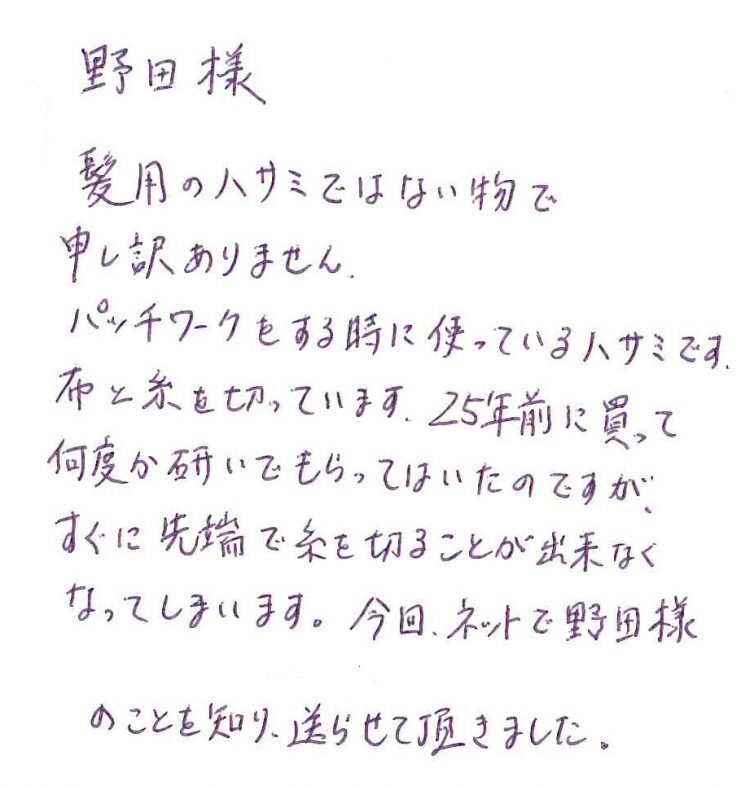 野田様
髪用のハサミではない物で
申し訳ありません.
パッチワークをする時に使っているハサミです.
布と糸を切っています. 25年前に買って
何度か研いでもらってはいたのですが、
すぐに先端で糸を切ることが出来なく
なってしまいます。今回、ネットで野田様
のことを知り、送らせて頂きました。